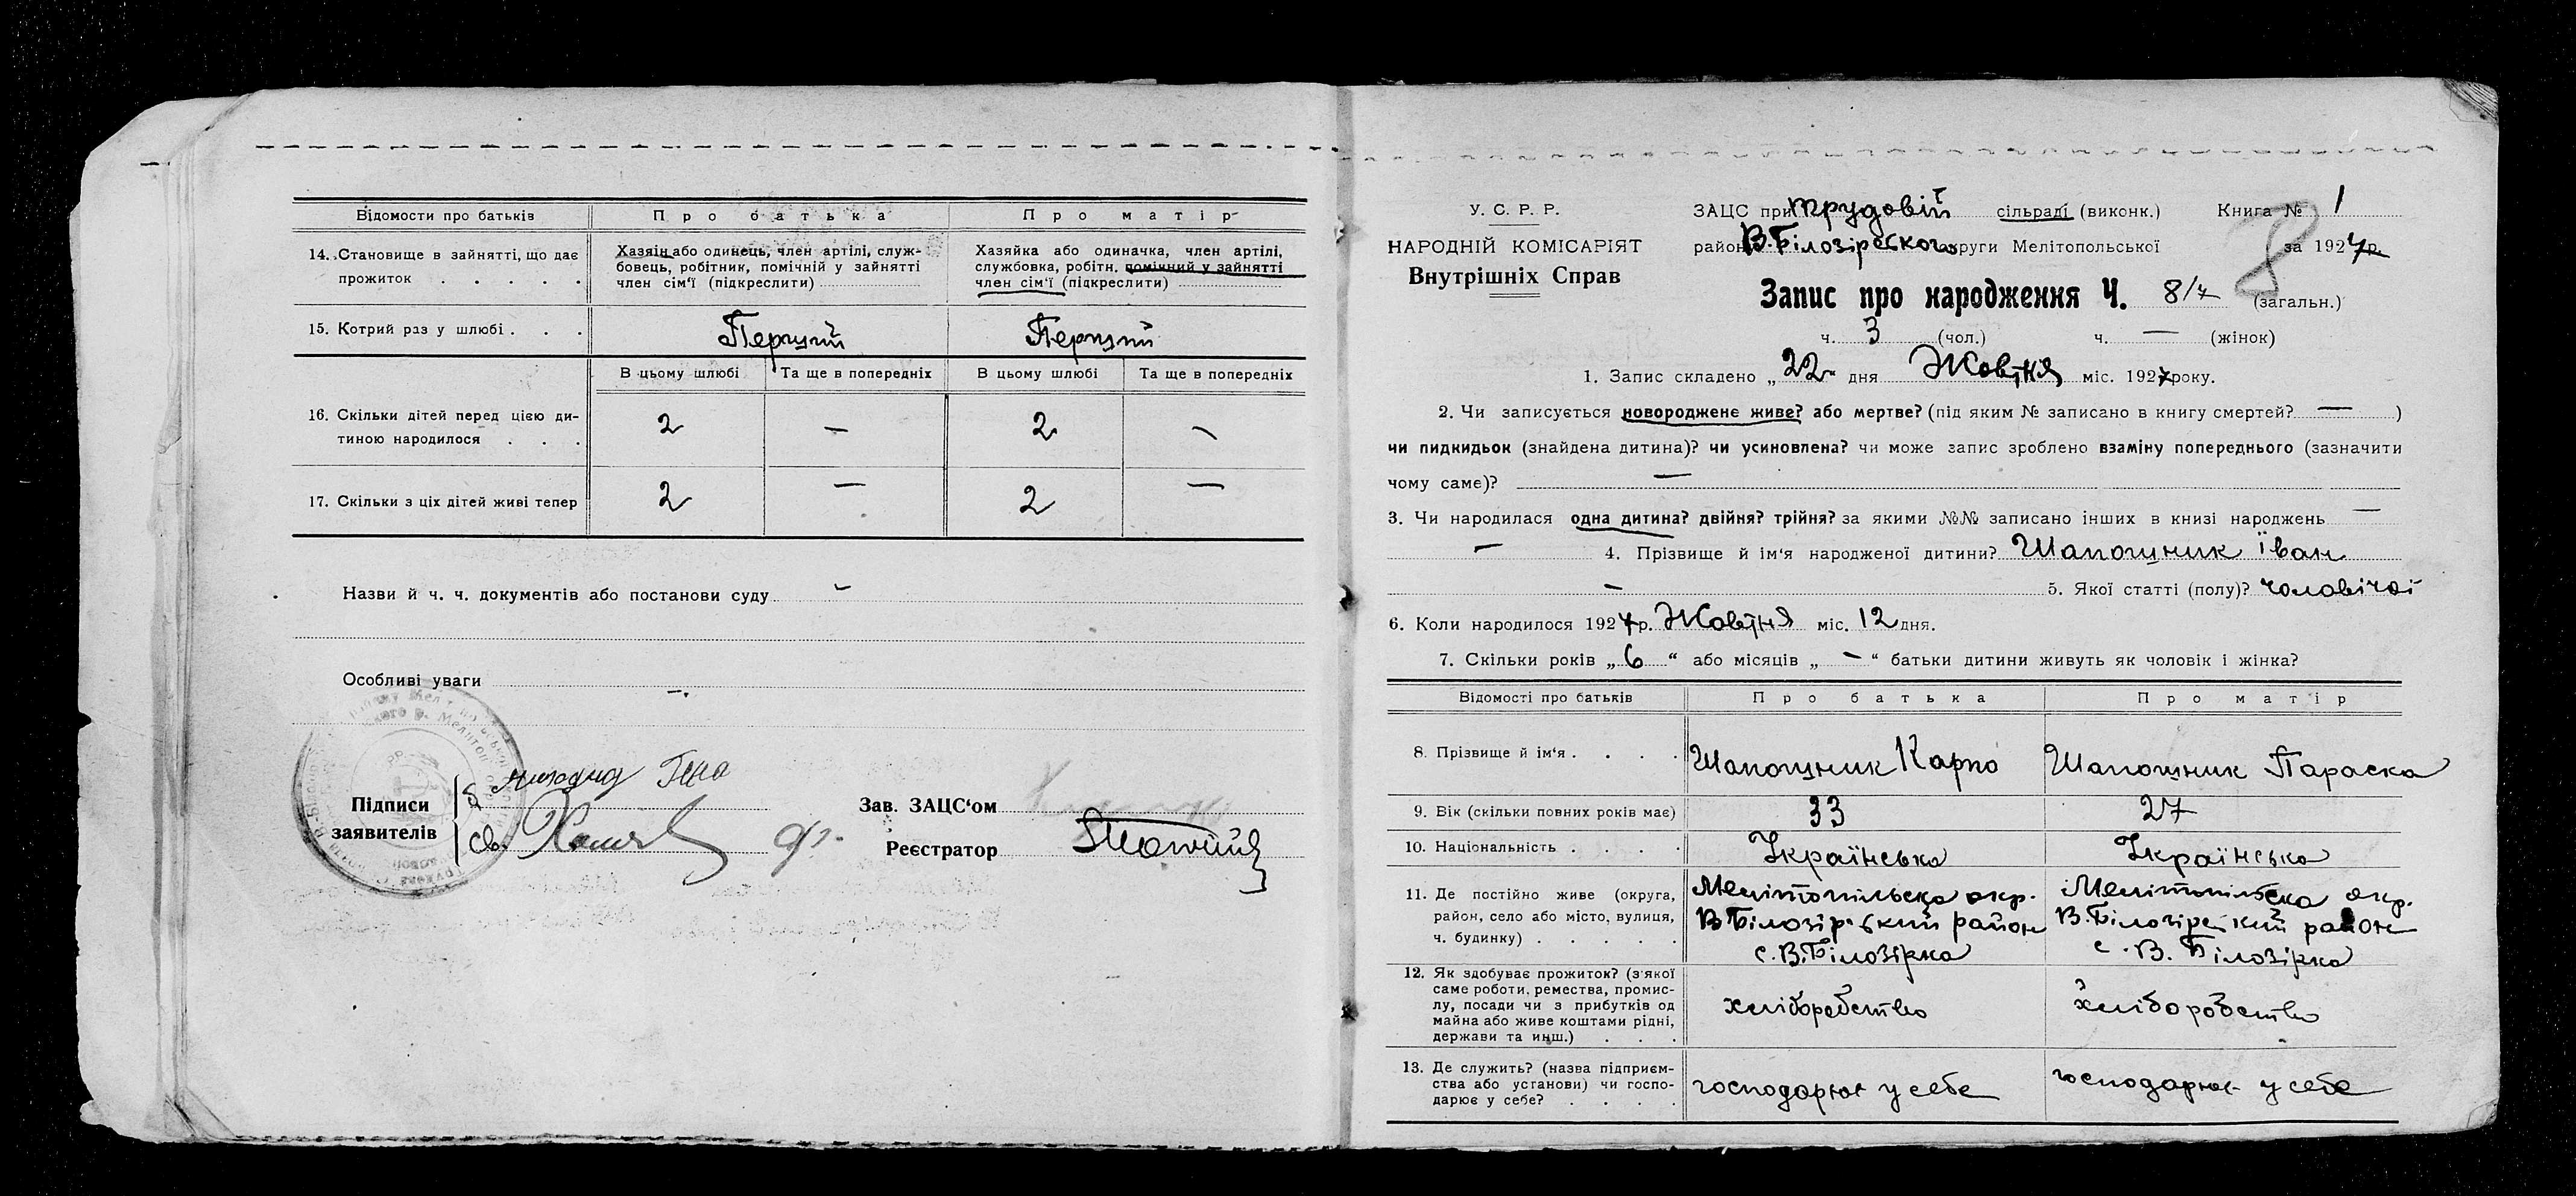 Відомости про батьків Про батька Про матір
14. Становище в зайнятті, що дає прожиток . . . . .
Хазяін або одинець, член артілі, служ-
бовець, робітник, помічній у зайнятті
член сім'ї (підкреслити)
Хазяйка або одиначка, член артілі,
службовка, робітн. помічний у зайнятті
член сім'ї (підкреслити)
15. Котрий раз у шлюбі . . . Перший Перший
В цьому шлюбі Та ще в попередніх В цьому шлюбі Та ще в попередніх
16. Скільки дітей перед цією ди-
тиною народилося . . . 2 — 2 —
17. Скільки з ціх дітей живі тепер 2 — 2 —
Назви й ч. ч. документів або постанови суду —
Особливі уваги —
Підписи
заявителів
Зав. ЗАЦС'ом
Реєстратор
У. С. Р. Р.
НАРОДНІЙ КОМІСАРІЯТ
Внутрішніх Справ
ЗАЦС при Трудовій сільраді (виконк.) Книга № 1
району В. Білозірского округи Мелітопольської за 1927 р.
8
Запис про народження Ч. 8/7 (загальн.)
ч. 3 (чол.) ч. — (жінок)
1. Запис складено „22“ дня Жовтня міс. 1927 року.
2. Чи записується новороджене живе? або мертве? (під яким № записано в книгу смертей? — )
чи пидкидьок (знайдена дитина)? чи усиновлена? чи може запис зроблено взаміну попереднього (зазначити
чому саме)? —
3. Чи народилася одна дитина? двійня? трійня? за якими №№ записано інших в книзі народжень —
— 4. Прізвище й ім'я народженої дитини? Шапошник Їван
— 5. Якої статті (полу)? чоловічої
6. Коли народилося 1927 р. Жовтня міс. 12 дня.
7. Скільки років „6“ або місяців „—“ батьки дитини живуть як чоловік і жінка?
Відомості про батьків Про батька Про матір
8. Прізвище й ім'я . . . . Шапошник Карпо Шапошник Параска
9. Вік (скільки повних років має) 33 27
10. Національність . . . . Українська Українська
11. Де постійно живе (округа,
район, село або місто, вулиця,
ч. будинку) . . . . .
Мелітопільська окр.
В Білозірський район
с. В. Білозірка
Мелітопільска окр.
В. Білозірский район
с. В. Білозірка
12. Як здобуває прожиток? (з якої
саме роботи, ремества, промис-
лу, посади чи з прибутків од
майна або живе коштами рідні,
держави та инш.) . . .
хліборобство
хліборобство
13. Де служить? (назва підприєм-
ства або установи) чи госпо-
дарює у себе? . . . .
господарює у себе
господарює у себе